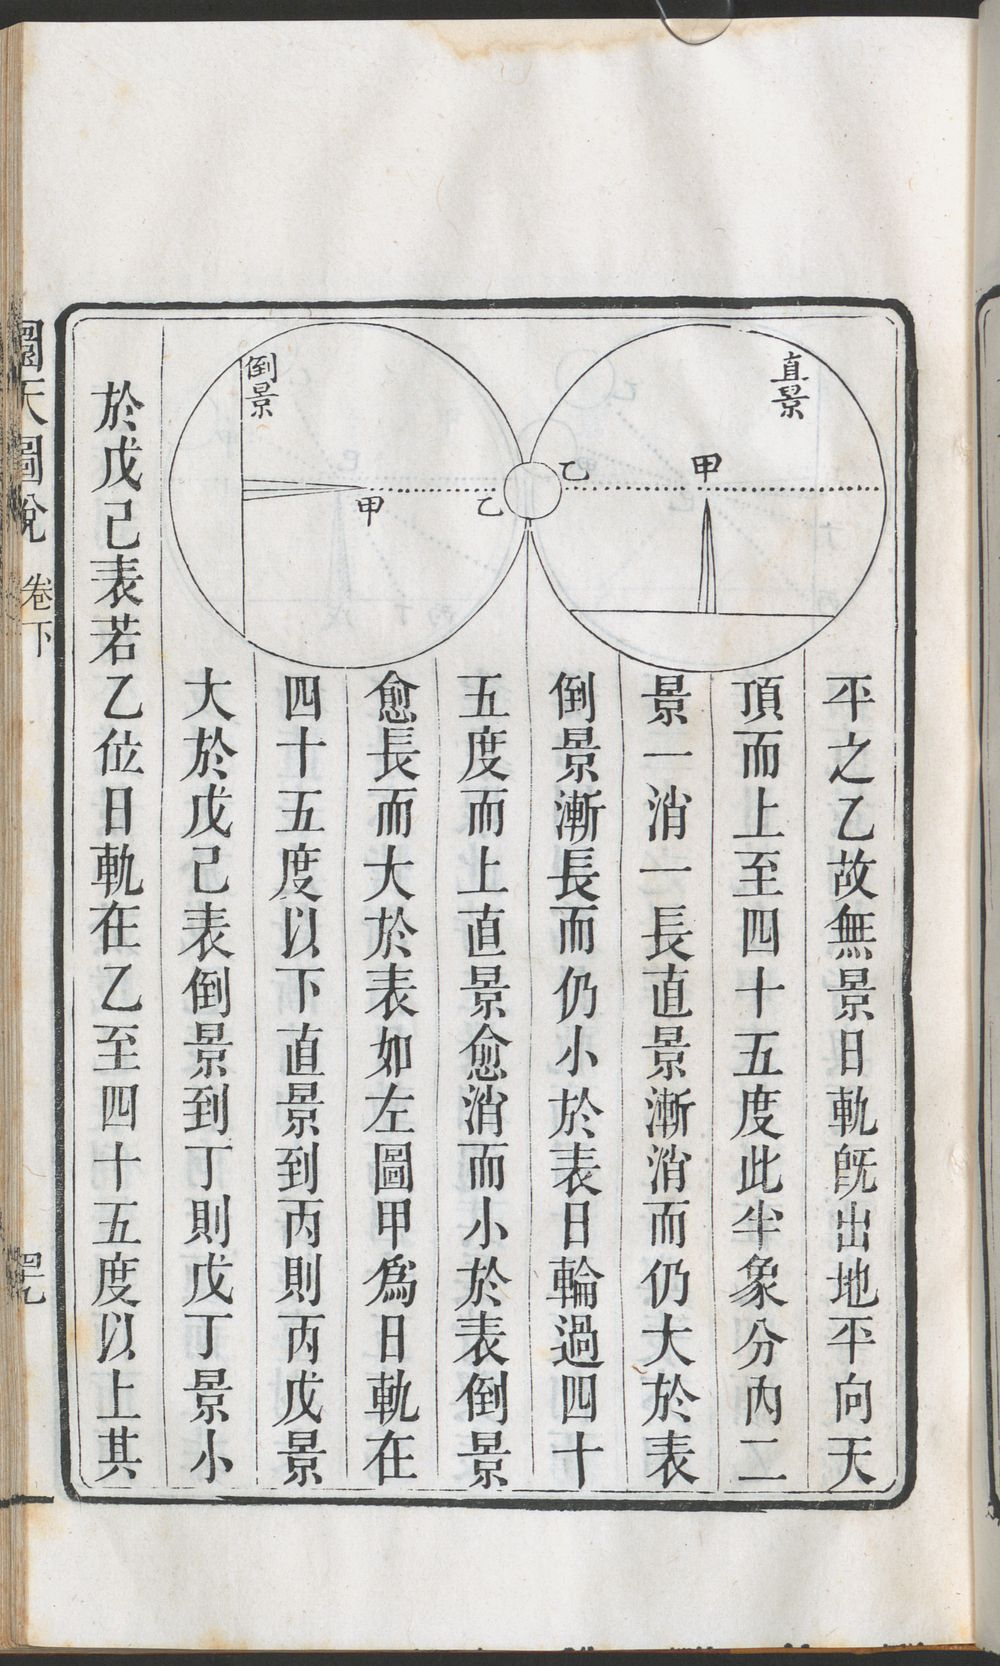 直景
甲
乙
倒景
甲
乙
平之乙故無景日軌旣出地平向天
頂而上至四十五度此半象分內二
景一消一長直景漸消而仍大於表
倒景漸長而仍小於表日輪過四十
五度而上直景愈消而小於表倒景
愈長而大於表如左圖甲爲日軌在
四十五度以下直景到丙則丙戊景
大於戊己表倒景到丁則戊丁景小
於戊己表若乙位日軌在乙至四十五度以上其
圜天圖說
卷下